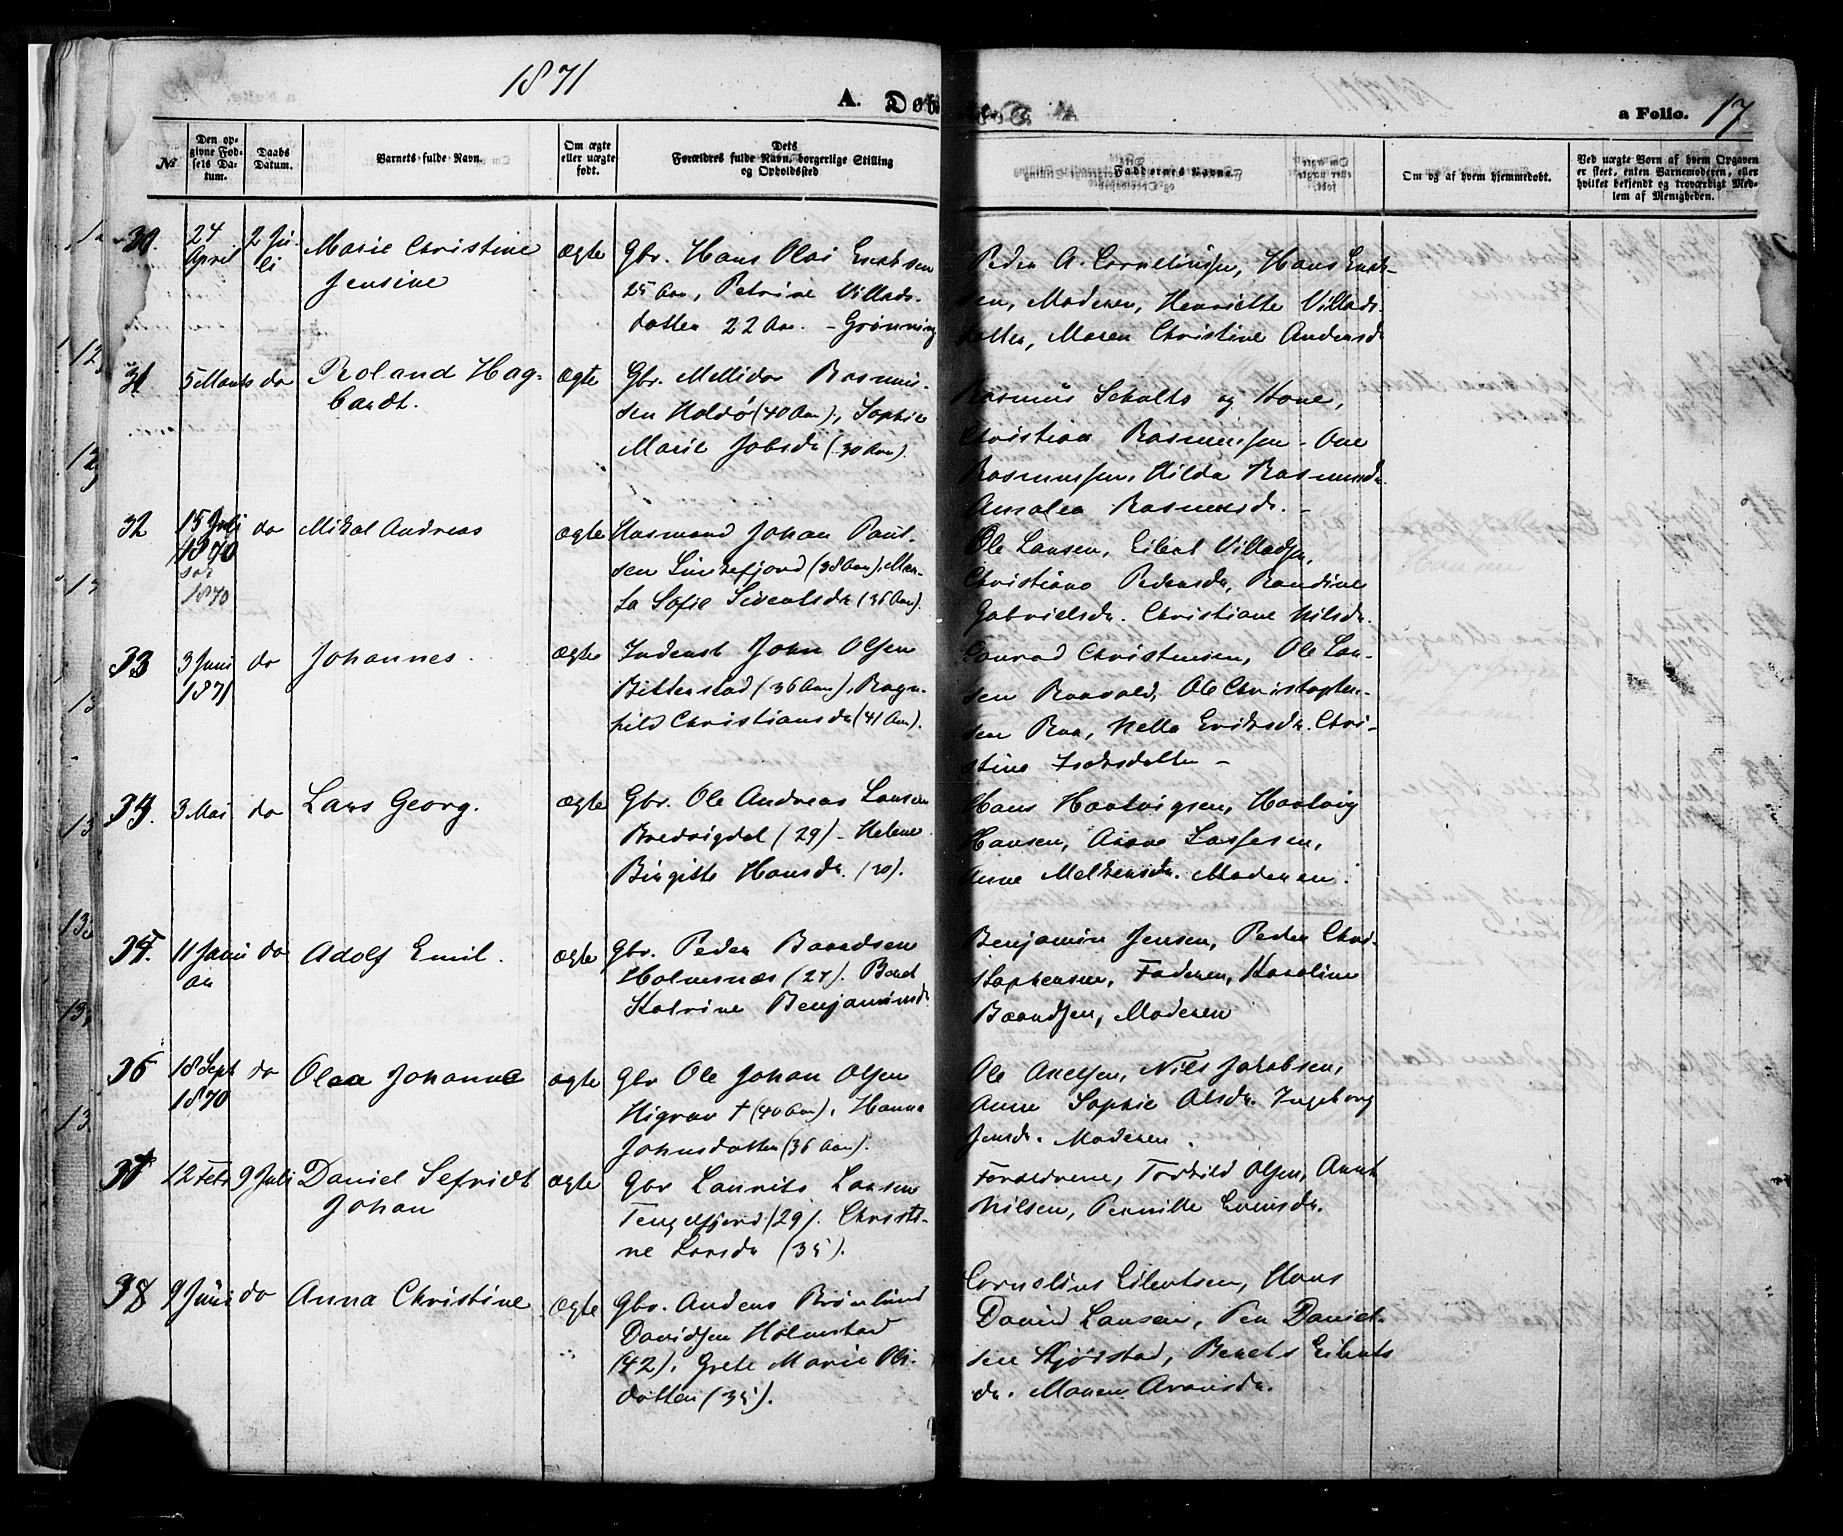 1871
A. Døb
a Folio. 17
No
Den opgivne Fødsels Datum.
Daabs Datum.
Barnets fulde Navn.
Om ægte eller uægte født.
Dets Forældres fulde Navn, borgerlige Stilling og Opholdssted
Faddernes Navne.
Om og af hvem hjemmedøbt.
Ved uægte Børn af hvem Opgaven er skeet, enten Barnemoderen, eller hvilket bekjendt og troværdigt Medlem af Menigheden.
30. 24 April 2 Juli Marie Christine Jensine ægte
Gbr. Hans Olai
25 Aar, Petrine Villads-
datter 22 Aar. - Grønning
Peder A. Corneliussen, Hans
sen, Moderen, Henriette Villads
datter, Maren Christine Andersd
31 5 Marts do Roland Hagbardt. ægte
Gbr. Mellidor Rasmus-
sen Holdø (40 Aar), Sophie
Marie Jobsdr (30 Aar).
Rasmus Schults og Kone,
Christian Rasmussen - Ove
Rasmussen, Hilda Rasmusdr.
Amalea Rasmusdr. -
32 15 Juli 1870 do Mikal Andreas ægte
1870
Husmand Johan Paul-
sen (38 Aar), Mar-
ta Sofie Sivertsdr (36 Aar).
Ole Larsen, Eilert Villadsen,
Christiane Pedersdr, Randine
Gabrielsdr. Christiane Nilsdr.
33 3 Juni 1871 do Johannes. ægte
Inderst John Olsen
Bitterstad (36 Aar), Ragn-
hild Christiansdr (41 Aar).
Conrad Christensen, Ole Lar-
sen Ole Christopher-
sen Raa, Nella Eriksdr. Chri-
stine Isaksdatter -
34. 3 Mai do Lars Georg. ægte
Gbr. Ole Andreas Larsen
Bredvigdal (29) - Helene
Birgitte Hansdr. (30).
Hans Hartvigsen, Hartvig
Hansen, Lassesen,
Anne Moderen.
35. 11 Januar do Adolf Emil. ægte
Gbr. Peder Baardsen
Holmsnæs (27). Beret
Katrine Benjaminsdr
Benjamin Jensen, Peder Chri-
stophersen, Faderen, Karoline
Baardsen, Moderen
36 18 Sept 1870 do Olea Johanna ægte
Gbr Ole Johan Olsen
Higrav † (40 Aar), Hanna
Johnsdatter (36 Aar).
Ole Axelsen, Nils Jakobsen,
Anne Sophie Olsdr. Ingeborg
Jensdr. Moderen.
37 12 Febr 9 Juli Daniel Sefridt Johan ægte
Gbr Laurits Larsen
Tengelfjord (29). Christi-
ne Larsdr (35).
Forældrene, Torkild Olsen, Arnt
Nilsen, Pernille
38 9 Juni do Anna Christine ægte
Gbr. Anders Brønlund
Davidsen Holmstad
(42), Grete Marie Ols-
datter (35).
Cornelius Eilertsen, Hans
David Larsen, Per Daniel-
sen Skjørstad, Berets Eilerts
dr. Maren Aronsdr.